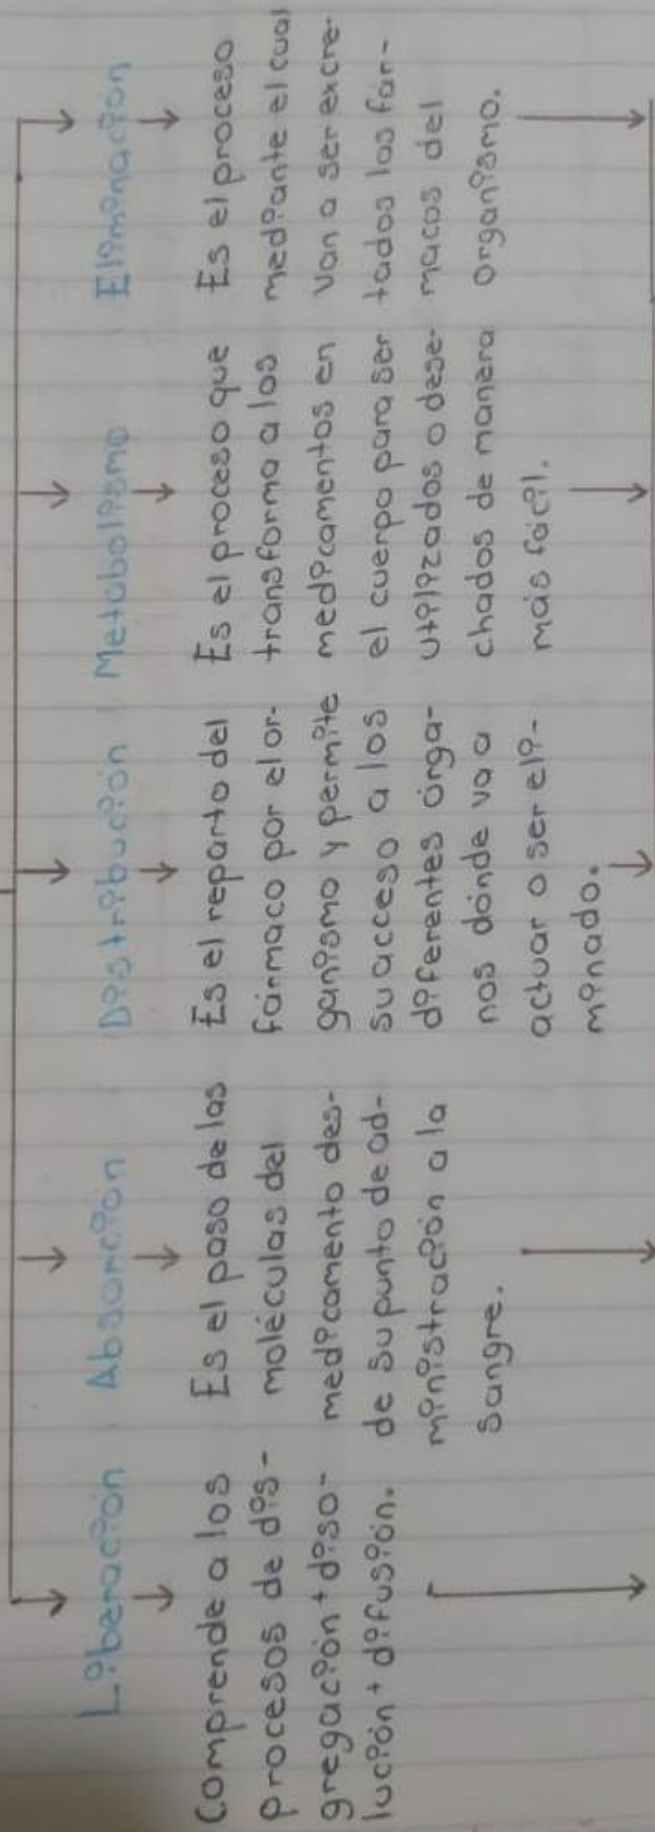 Liberación
Comprende a los
procesos de dis-
gregación + diso-
lución + difusión.
Absorción
Es el paso de las
moléculas del
medicamento des-
de su punto de ad-
ministración a la
sangre.
Distribución
Es el reparto del
fármaco por el or-
ganismo y permite
su acceso a los
diferentes órga-
nos dónde va a
actuar o ser eli-
minado.
Metabolismo
Es el proceso que
transforma a los
medicamentos en
el cuerpo para ser
utilizados o dese-
chados de manera
más fácil.
Eliminación
Es el proceso
mediante el cual
van a ser excre-
tados los fár-
macos del
organismo.